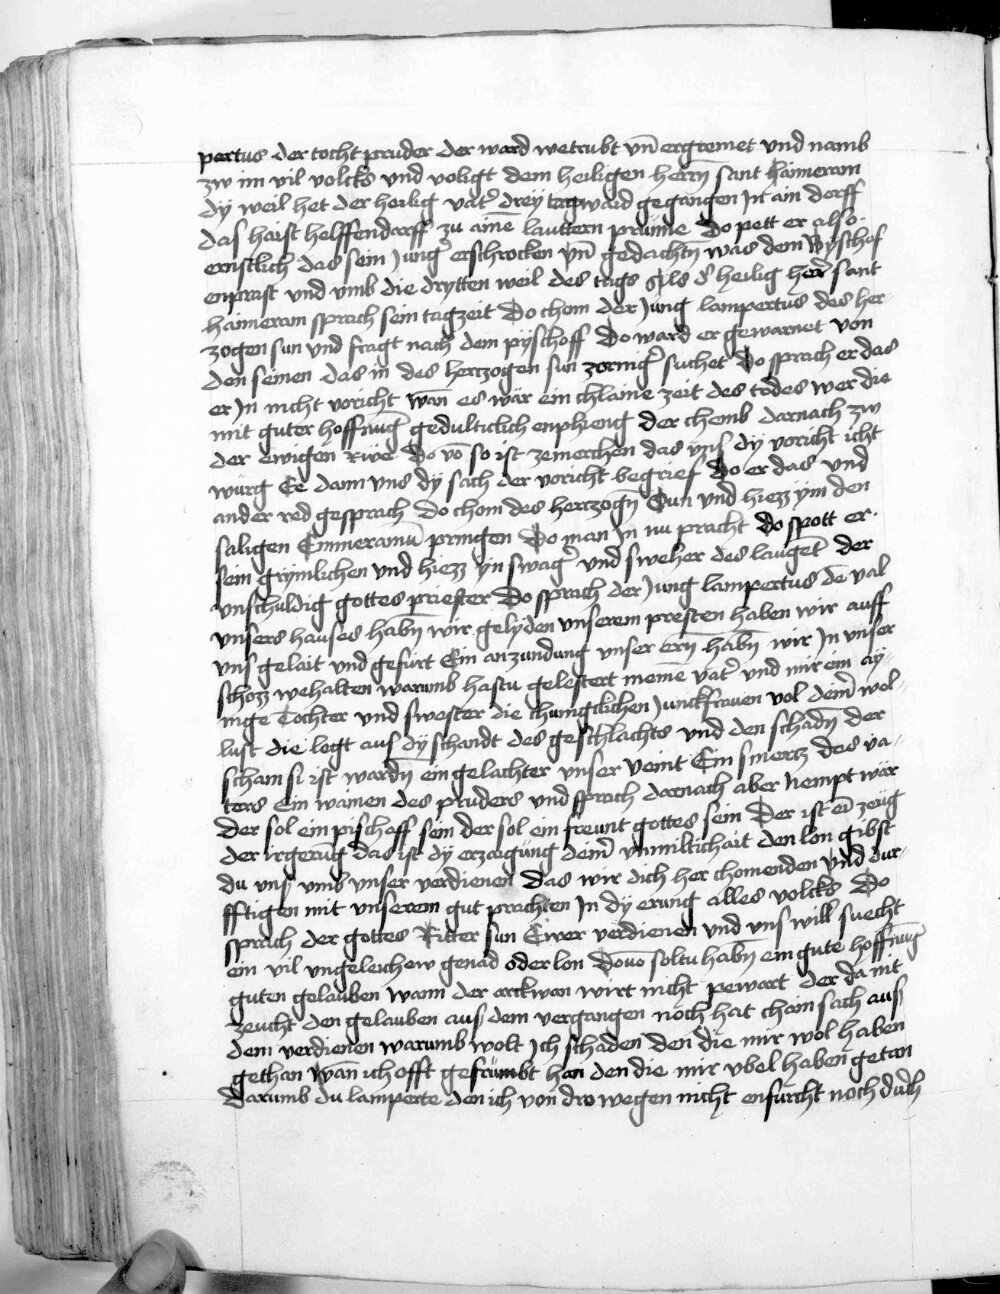 pertus der tocht pruder der ward wetrubt vn̄ ergremet vnd namb
zw im vil volcks vnd voligt dem heiligen herrn̄ sant haimeran
dÿ weil het der heilig vat͛ dreÿ tagwaid gegangen In ain dorff
das haist helffendorff zu aine͞ lauttern prunne Do pett er also
ernstlich das sein Jung͛ erschrocken vn̄ gedachtn̄ was dem Byschof
enprast vnd vmb die drytten weil des tags als d͛ heilig her͛ sant
haimeram sprach sein tagzeit Do chom der Jung lampertus des her-
zogen sun vnd fragt nach dem pyschoff Do ward er gewarnet von
den seinen das in des hertzogen sun zornig͛ suchet Do sprach er das
er In nicht voricht wan̄ es wär ein chlaine zeit des todes wer die
mit guter hoffnūg gedultiklich enphieng der chemb darnach zw
der ewigen Rwe Do vo͞ so ist zemerchen das vns dÿ voricht icht
würg Ee dann vns dÿ sach der voricht begrief Do er das vnd
ander red gesprach Do chom des hertzogn̄ Sun vnd hiezz ym den
saligen Emmeramū pringen Do man In nu pracht do spott er
sein grymlichen vnd hiezz yn swag͛ vnd sweher des lauget der
vnschuldig gottes priester Do sprach der Jung lampertus de͞ val
vnsers hauses habn̄ wir gelyden vnserem presten haben wir auff
vns gelait vnd gefurt Ein anzundung vnser ern̄ habn̄ wir In vnser
schozz wehalten warumb hastu gelestert meine͞ vat͛ vnd mir ein ay-
nige Tochter vnd swester die chunigklichen Junckfrauen vol dein͛ wol-
lust die legt aus dÿ schandt des geschlachts vnd den schadn̄ der
scham si ist wardn̄ ein gelachter vnser veint Ein smertz des va-
ters Ein wainen des pruders vnd sprach darnach aber Nempt war
der sol ein pischoff sein der sol ein freunt gottes sein Der ist ei͞ zeug
der irgerūg das ist dÿ erzaigung dein͛ vnmiltichait den lon gibst
du vns vmb vnser verdienen das wir dich her chomenden vnd dur-
fftigen mit vnserem gut prachten In dÿ erung alles volcks Do
sprach der gottes Ritter sun Ewer verdienen vnd vns will suecht
ein vil vngeleichew genad oder lon Dovo͞ soltu habn̄ ein gute hoffnūg
guten gelauben wann der arckwan wirt nicht pewart der da nit
zeucht den gelauben aus dem vergangen noch hat cham sach aus
dem verdienen warumb wolt Ich schaden den die mir wol haben
gethan wan̄ ich offt gefrumbt han den die mir vbel haben getan
Darumb du lamperte den ich von dro wegen nicht enfurcht noch durch